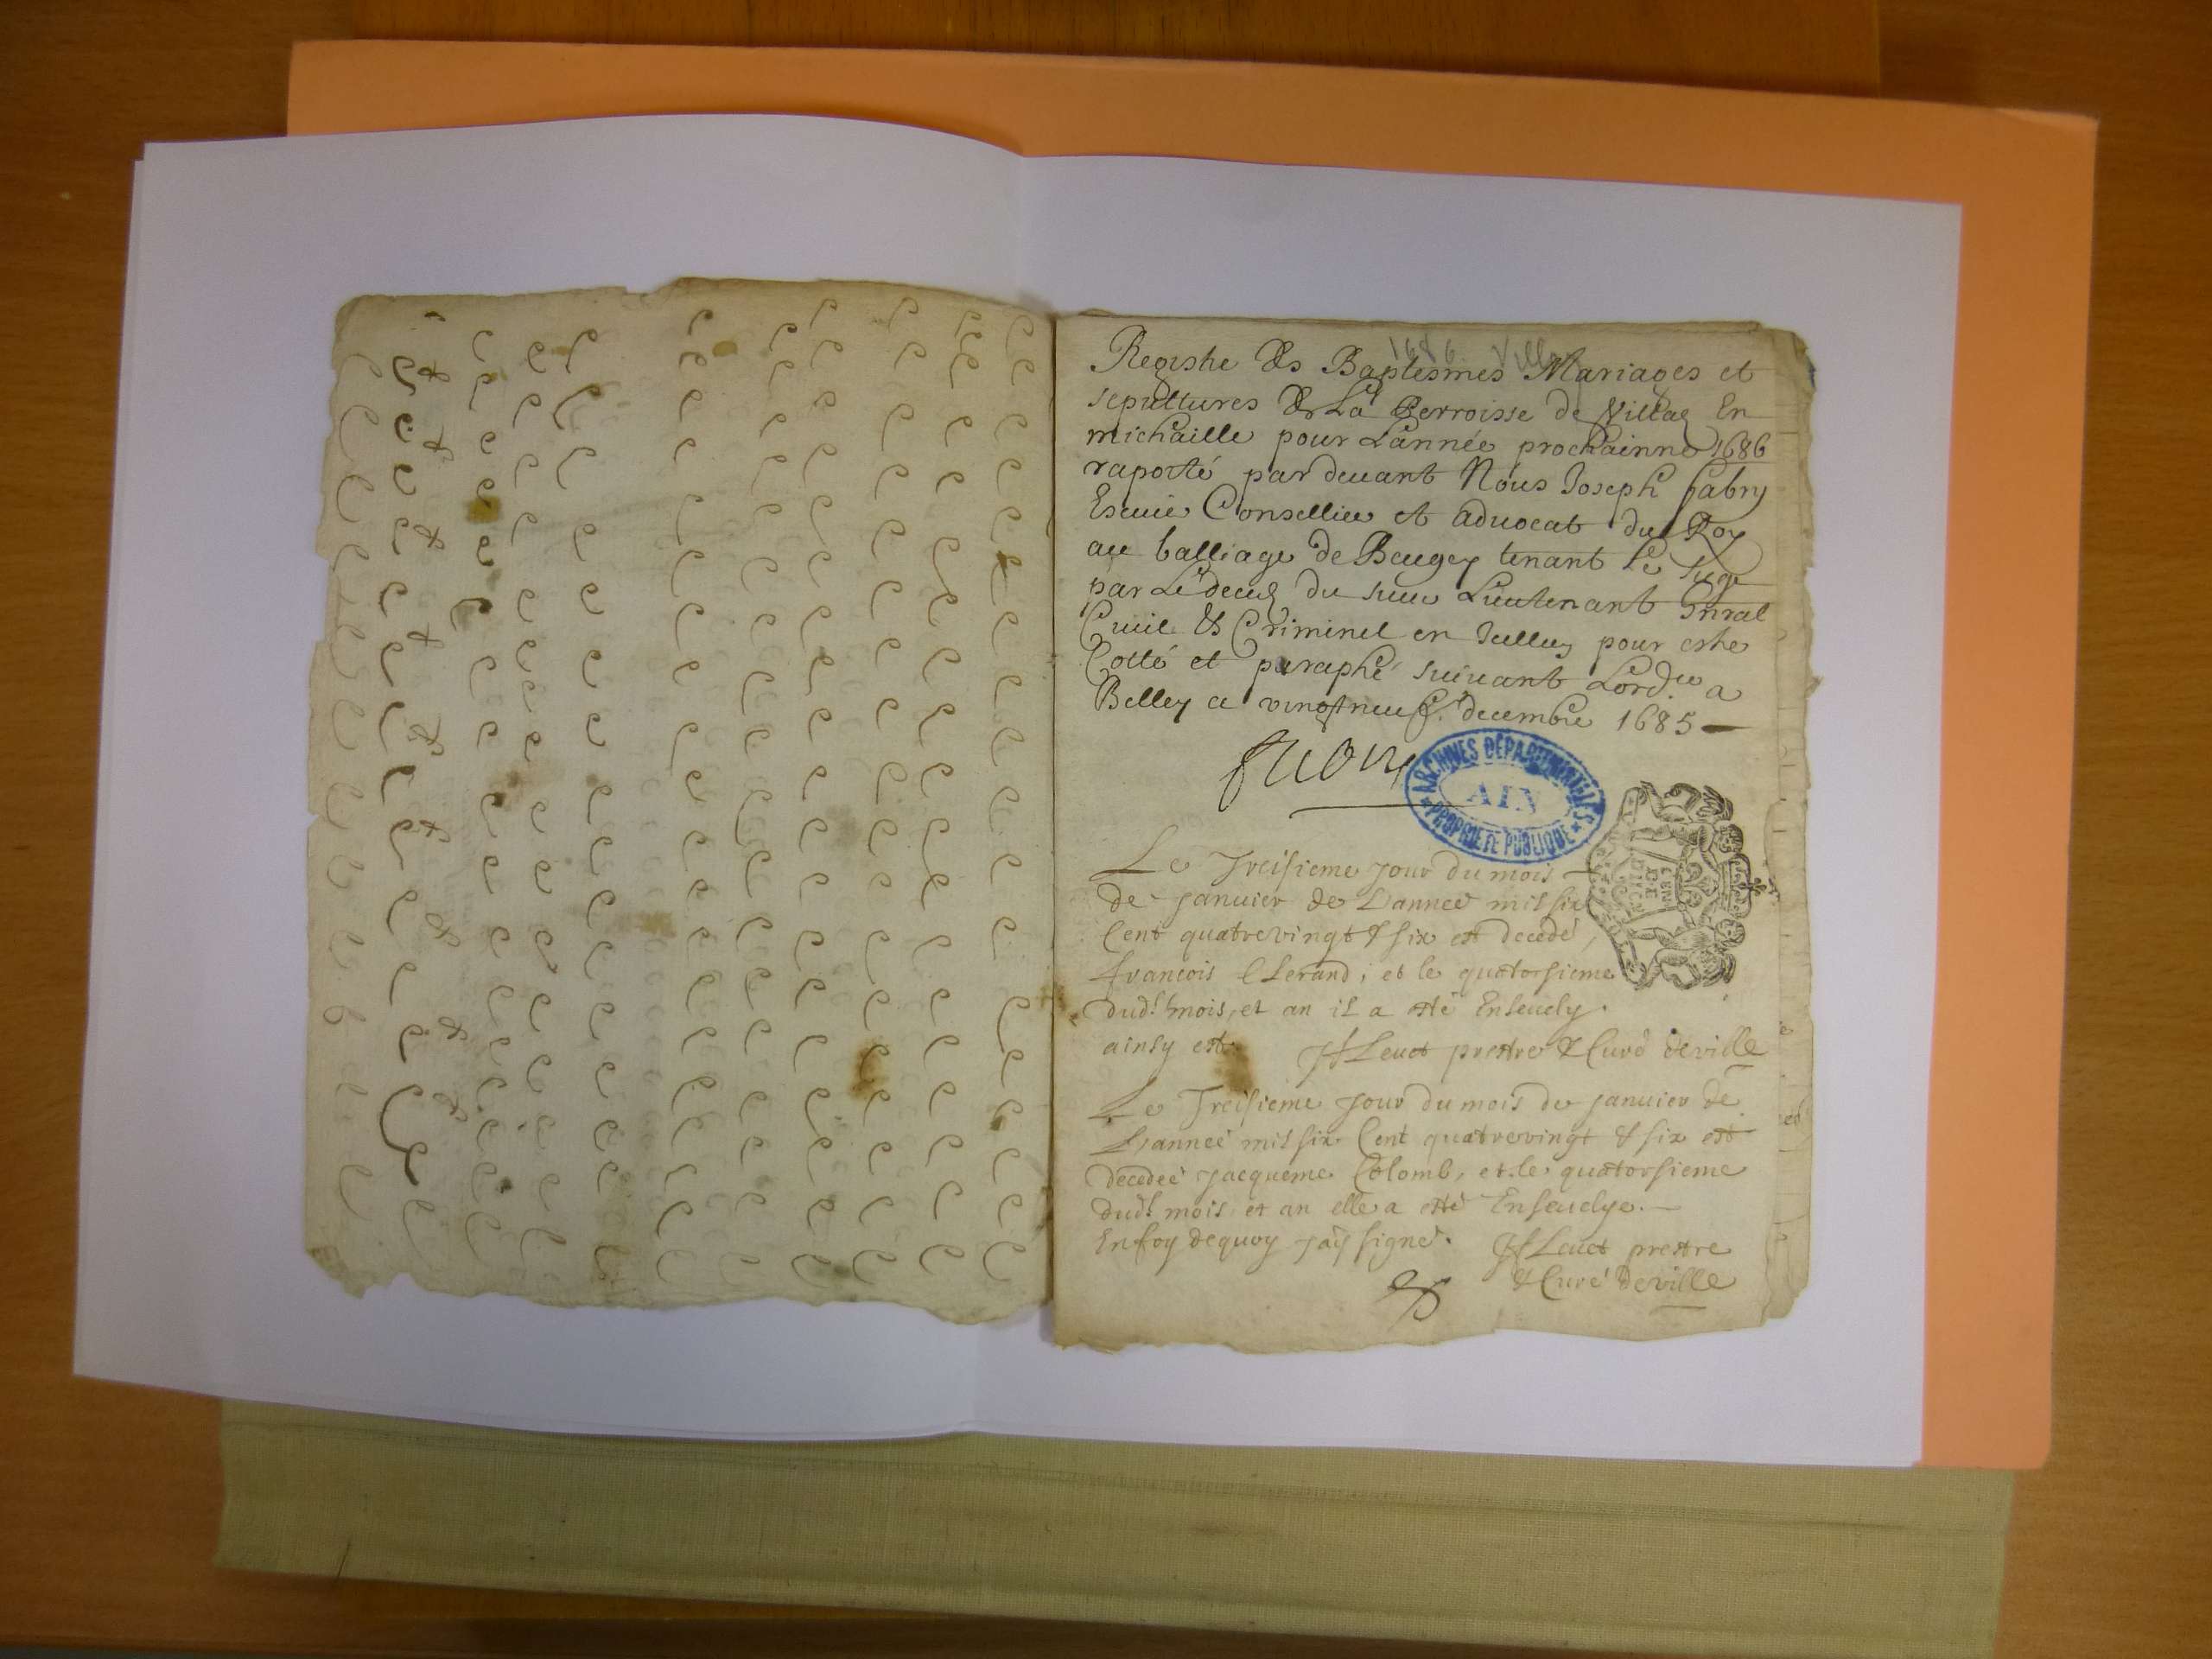 1686 Ville
Registre des Baptesmes Mariages et
sepultures de La Perroisse de Villaz En
michaille pour L'année prochainne 1686
raporté pardeuant Nous Joseph fabry
Escuier Consellier et aduocat du Roy
au balliage de Beugey tenant Le siege
par Le deces du sieur Lieutenant Gnral
Ciuil & Criminel en Jcelluy pour estre
Cotté et paraphé suiuant Lord.ce a
Belley ce vingtneuf. decembre 1685
ARCHIVES DÉPARTEMENTALES
AIN
PROPRIÉTÉ PUBLIQUE
GEN
DE
Le Treisieme jour du mois
de januier de L'année mil six
Cent quatrevingt & six est decedé,
françois Clerand, et le quatorsieme
dud.t mois, et an il a esté Enseuely.
ainsy est. Leuet prestre & Curé de ville
Le Treisieme jour du mois de januier de
L'année mil six Cent quatrevingt & six est
decedeé jacqueme Colomb, et le quatorsieme
dud.t mois et an elle a esté Enseuelye.
En foy dequoy jaÿ signé. Leuet prestre
& Curé de ville